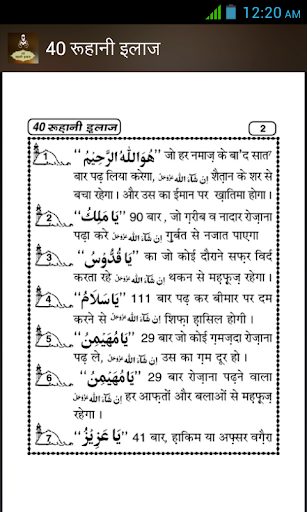 12:20 AM
40 रूहानी इलाज
40 रूहानी इलाज 2
1 “هُوَاللّٰهُ الرَّحِيْمُ” जो हर नमाज़ के बा'द सात
बार पढ़ लिया करेगा, اِنْ شَآءَاللّٰه عَزَّوَجَلَّ शैत़ान के शर से
बचा रहेगा । और उस का ईमान पर ख़ातिमा होगा ।
2 “يَا مَلِكُ” 90 बार, जो ग़रीब व नादार रोज़ाना
पढ़ा करे اِنْ شَآءَاللّٰه عَزَّوَجَلَّ ग़ुर्बत से नजात पाएगा
3 “يَا قُدُّوْسُ” का जो कोई दौराने सफ़र विर्द
करता रहे اِنْ شَآءَاللّٰه عَزَّوَجَلَّ थकन से महफ़ूज़ रहेगा ।
4 “يَا سَلَامُ” 111 बार पढ़ कर बीमार पर दम
करने से اِنْ شَآءَاللّٰه عَزَّوَجَلَّ शिफ़ा हासिल होगी ।
5 “يَا مُهَيْمِنُ” 29 बार जो कोई ग़मज़दा रोज़ाना
पढ़ ले, اِنْ شَآءَاللّٰه عَزَّوَجَلَّ उस का ग़म दूर हो ।
6 “يَا مُهَيْمِنُ” 29 बार रोज़ाना पढ़ने वाला
اِنْ شَآءَاللّٰه عَزَّوَجَلَّ हर आफ़तों और बलाओं से महफ़ूज़
रहेगा ।
7 “يَا عَزِيْزُ” 41 बार, हाकिम या अफ़्सर वग़ैरा